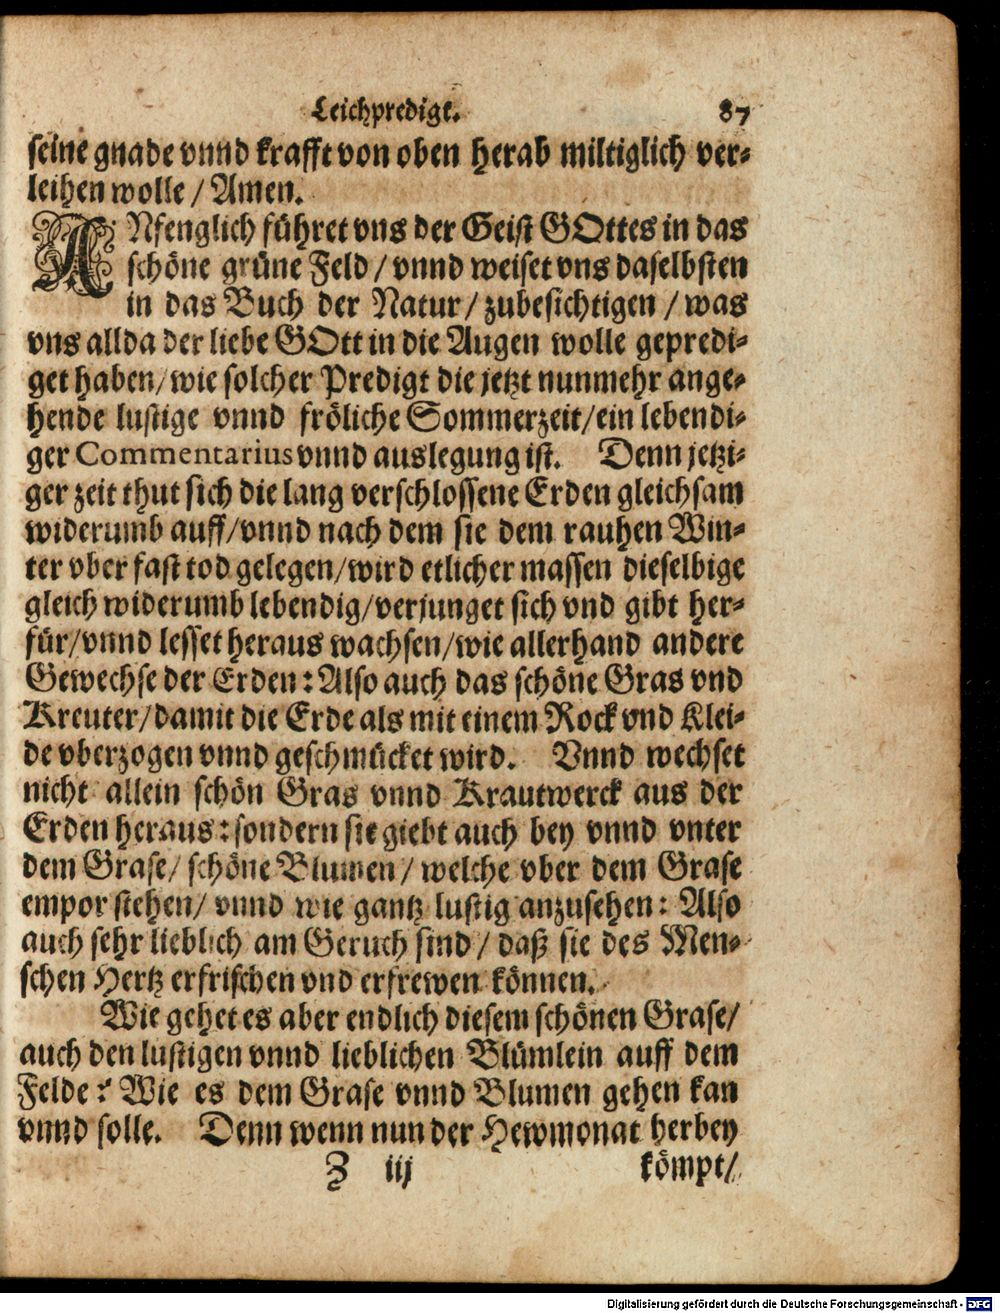 Leichpredigt. 87
seine gnade vnnd krafft von oben herab miltiglich ver-
leihen wolle / Amen.
ANfenglich führet vns der Geist GOttes in das
schöne grüne Feld / vnnd weiset vns daselbsten
in das Buch der Natur / zubesichtigen / was
vns allda der liebe GOtt in die Augen wolle gepredi-
get haben / wie solcher Predigt die jetzt nunmehr ange-
hende lustige vnnd fröliche Sommerzeit / ein lebendi-
ger Commentarius vnnd auslegung ist. Denn jetzi-
ger zeit thut sich die lang verschlossene Erden gleichsam
widerumb auff / vnnd nach dem sie dem rauhen Win-
ter vber fast tod gelegen / wird etlicher massen dieselbige
gleich widerumb lebendig / verjunget sich vnd gibt her-
für / vnnd lesset heraus wachsen / wie allerhand andere
Gewechse der Erden : Also auch das schöne Gras vnd
Kreuter / damit die Erde als mit einem Rock vnd Klei-
de vberzogen vnnd geschmücket wird. Vnnd wechset
nicht allein schön Gras vnnd Krautwerck aus der
Erden heraus : sondern sie giebt auch bey vnnd vnter
dem Grase / schöne Blumen / welche vber dem Grase
empor stehen / vnnd wie gantz lustig anzusehen : Also
auch sehr lieblich am Geruch sind / daß sie des Men-
schen Hertz erfrischen vnd erfrewen können.
Wie gehet es aber endlich diesem schönen Grase /
auch den lustigen vnnd lieblichen Blümlein auff dem
Felde ? Wie es dem Grase vnnd Blumen gehen kan
vnnd solle. Denn wenn nun der Hewmonat herbey
Z iij kömpt /
Digitalisierung gefördert durch die Deutsche Forschungsgemeinschaft - DFG